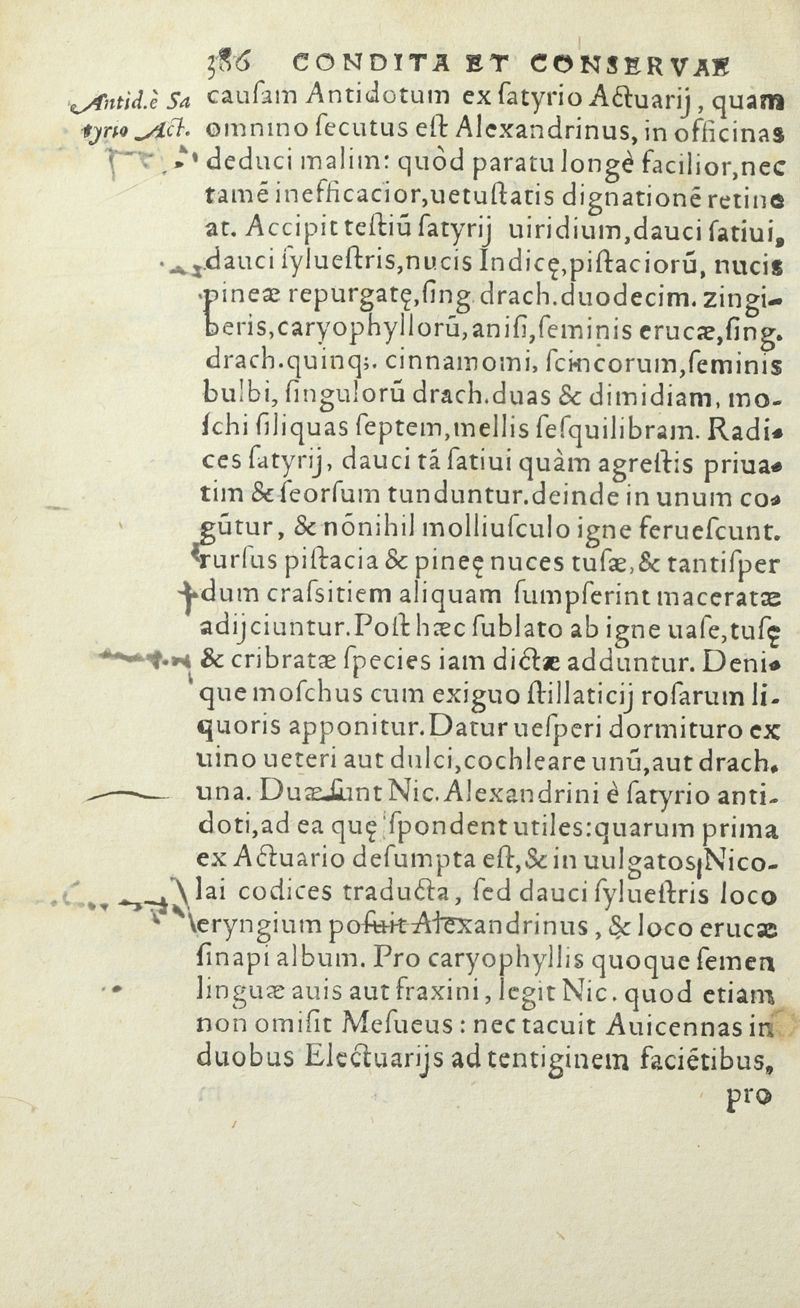 386 CONDITA ET CONSERVAE
Antid.è Sa
tyrio Act.
cauſam Antidotum ex ſatyrio Actuarij, quam
omnino ſecutus eſt Alexandrinus, in officinas
deduci malim: quòd paratu longè facilior,nec
tamē inefficacior,uetuſtatis dignationē retine
at. Accipit teſtiū ſatyrij uiridium,dauci ſatiui,
dauci ſylueſtris,nucis Indicę,piſtaciorū, nucis
pineæ repurgatę,ſing.drach.duodecim. zingi-
beris,caryophyllorū,aniſi,ſeminis erucæ,ſing.
drach.quinq;. cinnamomi, ſcincorum,ſeminis
bulbi, ſingulorū drach.duas & dimidiam, mo-
ſchi ſiliquas ſeptem,mellis ſeſquilibram. Radi-
ces ſatyrij, dauci tā ſatiui quàm agreſtis priua-
tim & ſeorſum tunduntur.deinde in unum co-
gūtur, & nōnihil molliuſculo igne ferueſcunt.
rurſus piſtacia & pineę nuces tuſæ,& tantiſper
dum craſsitiem aliquam ſumpſerint maceratæ
adijciuntur.Poſt hæc ſublato ab igne uaſe,tuſę
& cribratæ ſpecies iam dictæ adduntur. Deni-
que moſchus cum exiguo ſtillaticij roſarum li-
quoris apponitur.Datur ueſperi dormituro ex
uino ueteri aut dulci,cochleare unū,aut drach.
una. Duæ ſunt Nic.Alexandrini è ſatyrio anti-
doti,ad ea quę ſpondent utiles:quarum prima
ex Actuario deſumpta eſt,& in uulgatos Nico-
lai codices traducta, ſed dauci ſylueſtris loco
eryngium poſuit Alexandrinus, & loco erucæ
ſinapi album. Pro caryophyllis quoque ſemen
linguæ auis aut fraxini, legit Nic. quod etiam
non omiſit Meſueus: nec tacuit Auicennas in
duobus Electuarijs ad tentiginem faciētibus,
pro